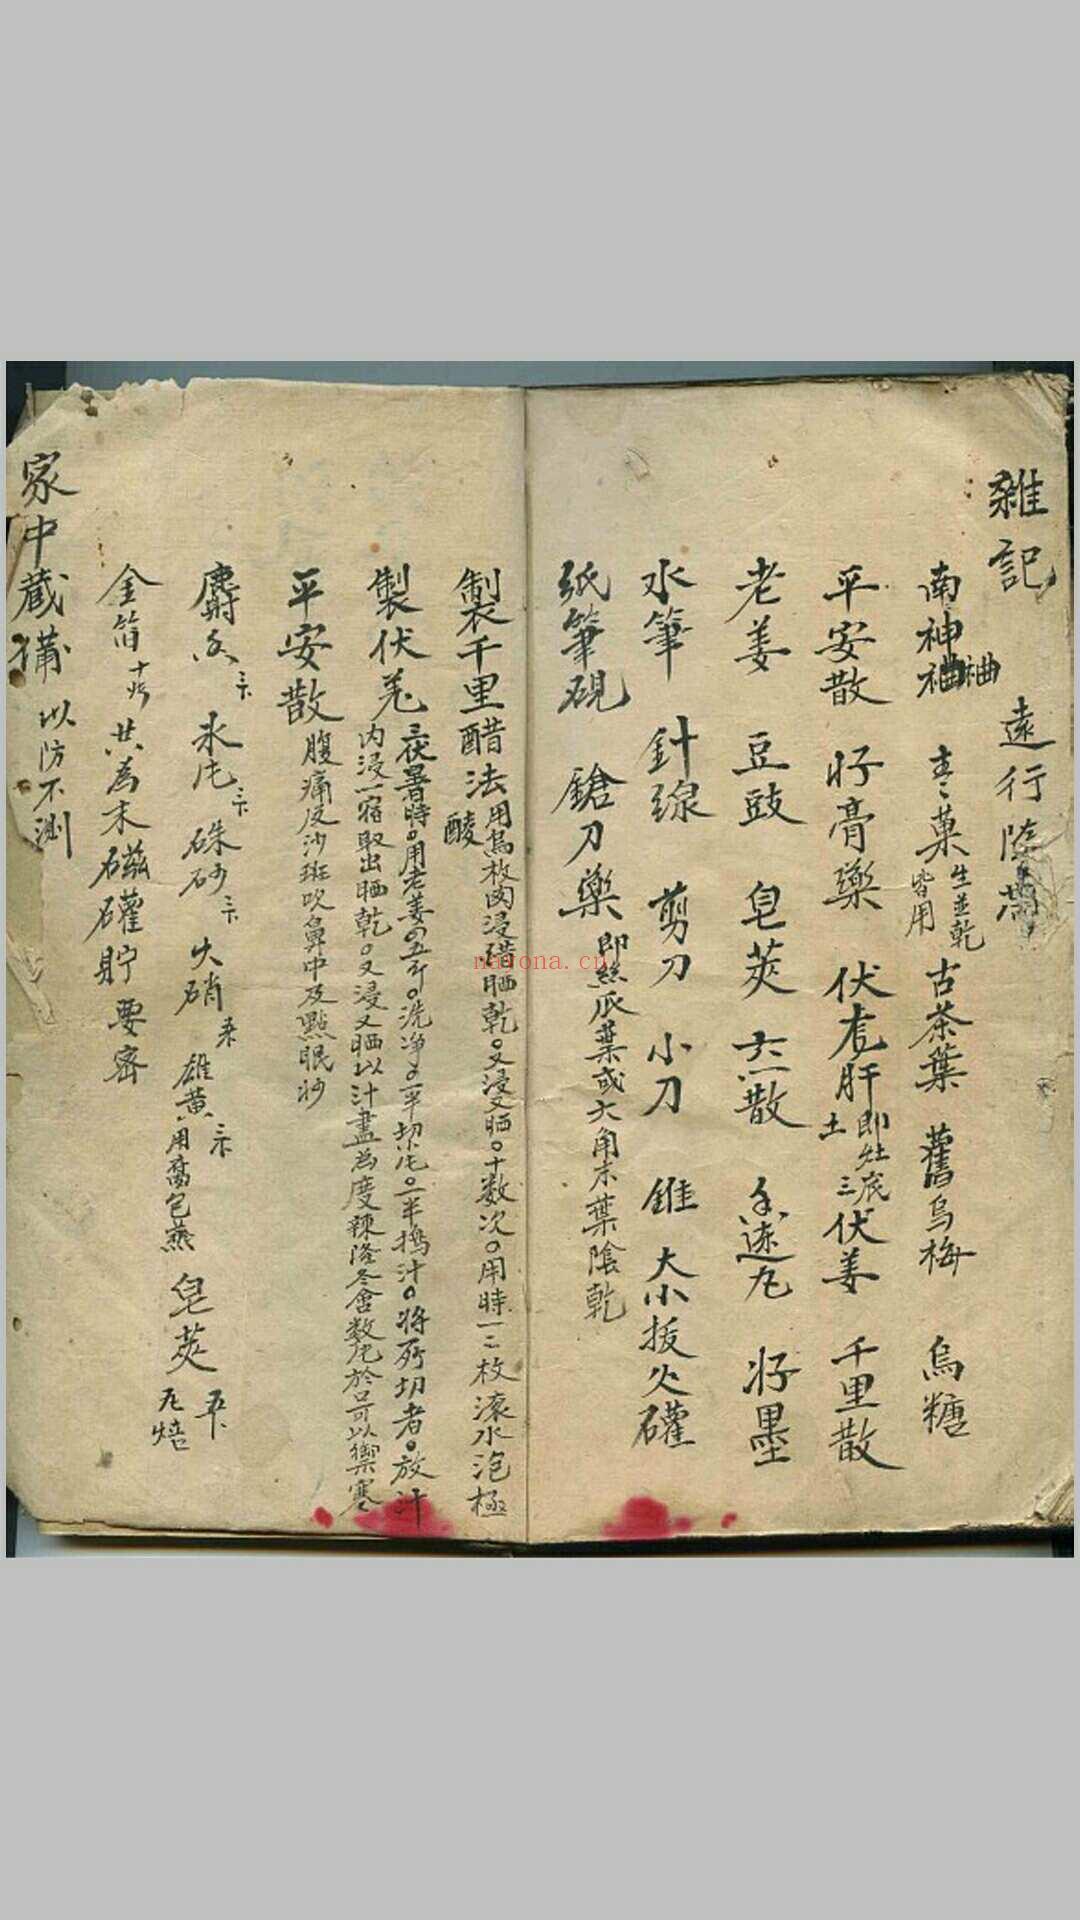 雜記
遠行隨
南神
菓 生並乾 皆用 古茶葉 舊烏梅 烏糖
平安散 好膏藥 伏虎肝 即灶底土 三伏姜 千里散
老姜 豆豉 皂莢 六散 丸 好墨
水筆 針線 剪刀 小刀 錐 大小拔火礶
紙筆硯 鎗刀藥 即絲瓜葉或大角末葉陰乾
製千里醋法 用烏枚肉浸醋晒乾。又浸又晒。十数次。用時一二枚滚水泡極
酸
製伏羌 三伏暑時。用老姜四五斤。洗净。一半切片。一半搗汁。将所切者。放汁
内浸一宿取出晒乾。又浸又晒以汁盡為度辣隆冬含数片於口可以禦寒
平安散 腹痛反沙斑吹鼻中及點眼妙
麝 冰片 硃砂 火硝 雄黄 用腐包蒸 皂莢 焙
金箔 共為末磁礶貯要密
家中藏備 以防不測
nayona.cn